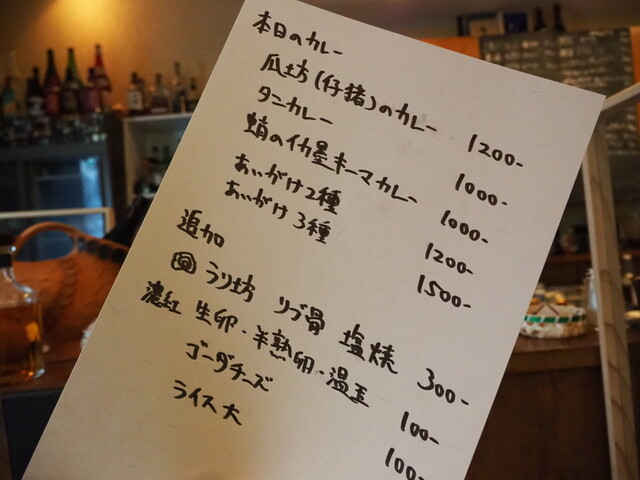 本日のカレー
瓜坊(仔猪)のカレー 1200-
タニカレー 1000-
蛸のイカ墨キーマカレー 1000-
あいがけ2種 1200-
あいがけ3種 1500-
追加
ウリ坊 リブ骨 塩焼 300-
濃紅 生卵・半熟卵・温玉 100-
ゴーダチーズ 100-
ライス大